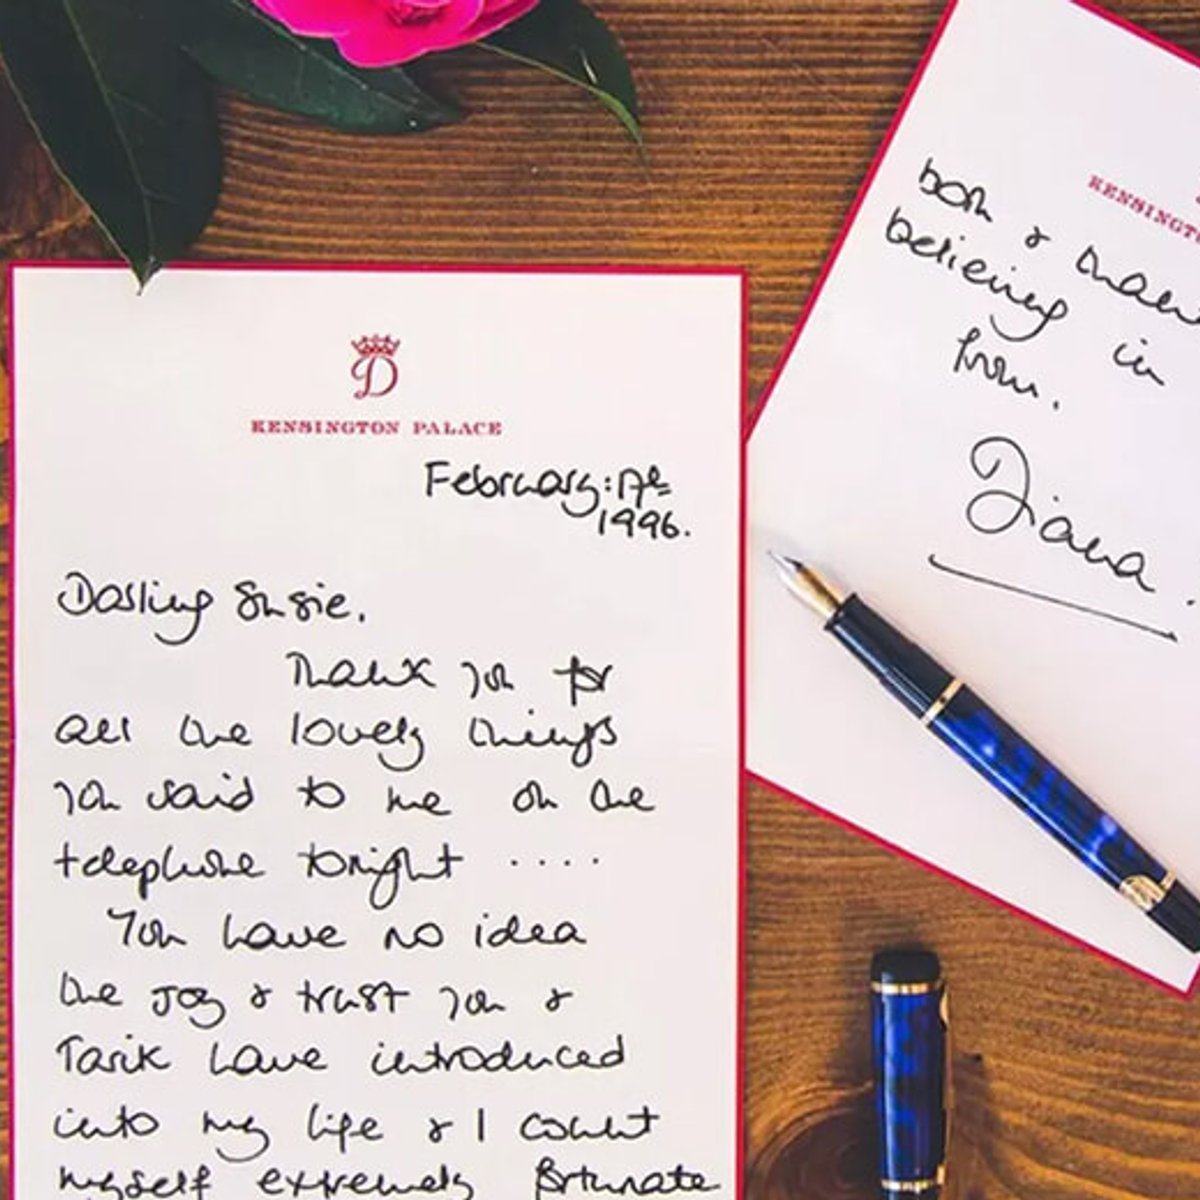 D
KENSINGTON PALACE
February: 17th
1996.
Darling Susie,
Thank you for
all the lovely things
you said to me on the
telephone tonight ....
You have no idea
the joy & trust you &
Tarik have introduced
into my life & I count
myself extremely fortunate
KENSINGTON
both & thank
believing in
from.
Diana.